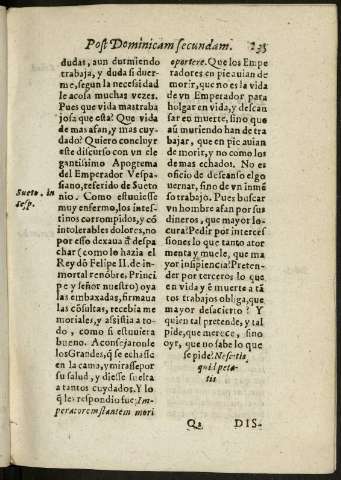 Post Dominicam secundam. 235
dudas, aun durmiendo
trabaja, y duda si duer-
me, segun la necessidad
le acosa muchas vezes.
Pues que vida mas traba
josa que esta? Que vida
de mas afan, y mas cuy-
dado? Quiero concluyr
este discurso con vn ele
gantissimo Apogrema
del Emperador Vespa-
siano, referido de Sueto
nio. Como estuuiesse
muy enfermo, los intes-
tinos corrompidos, y cõ
intolerables dolores, no
por esso dexaua d̃ despa
char (como lo hazia el
Rey dõ Felipe II. de in-
mortal renõbre, Princi
pe y señor nuestro) oya
las embaxadas, firmaua
las cõsultas, recebia me
moriales, y assistia a to-
do, como si estuuiera
bueno. Aconsejaronle
los Grandes, q̃ se echasse
en la cama, y mirasse por
su salud, y diesse suelta
a tantos cuydados. Y lo
q̃ les respondio fue: Im-
peratorem stantem mori
Sueto. in
Vesp.
oportere. Que los Empe
radores en pie auian de
morir, que no es la vida
de vn Emperador para
holgar en vida, y descan
sar en muerte, sino que
aũ muriendo han de tra
bajar, que en pie auian
de morir, y no como los
de mas echados. No es
oficio de descanso el go
uernar, sino de vn inmẽ
so trabajo. Pues buscar
vn hombre afan por sus
dineros, que mayor lo-
cura? Pedir por interces
siones lo que tanto ator
menta y muele, que ma
yor insipiencia? Preten-
der por terceros lo que
en vida y ẽ muerte a tã
tos trabajos obliga, que
mayor desacierto? Y
quien tal pretende, y tal
pide, que merece, sino
oyr, que no sabe lo que
se pide? Nescitis
quid peta-
tis
Qq DIS-